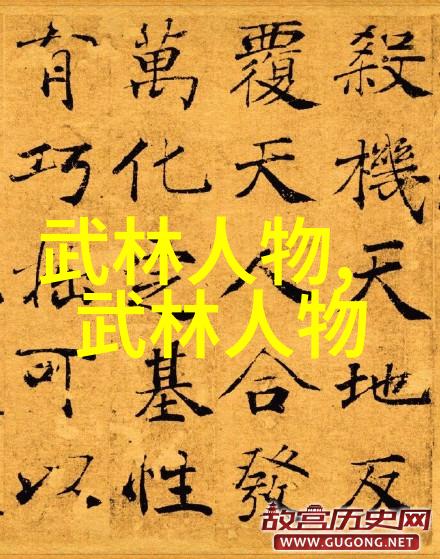 殺機天地反
覆天人合發
萬化定基性
有巧拙可以
武林人物,
武林人物
故宫历史网
WWW.GUGONG.NET